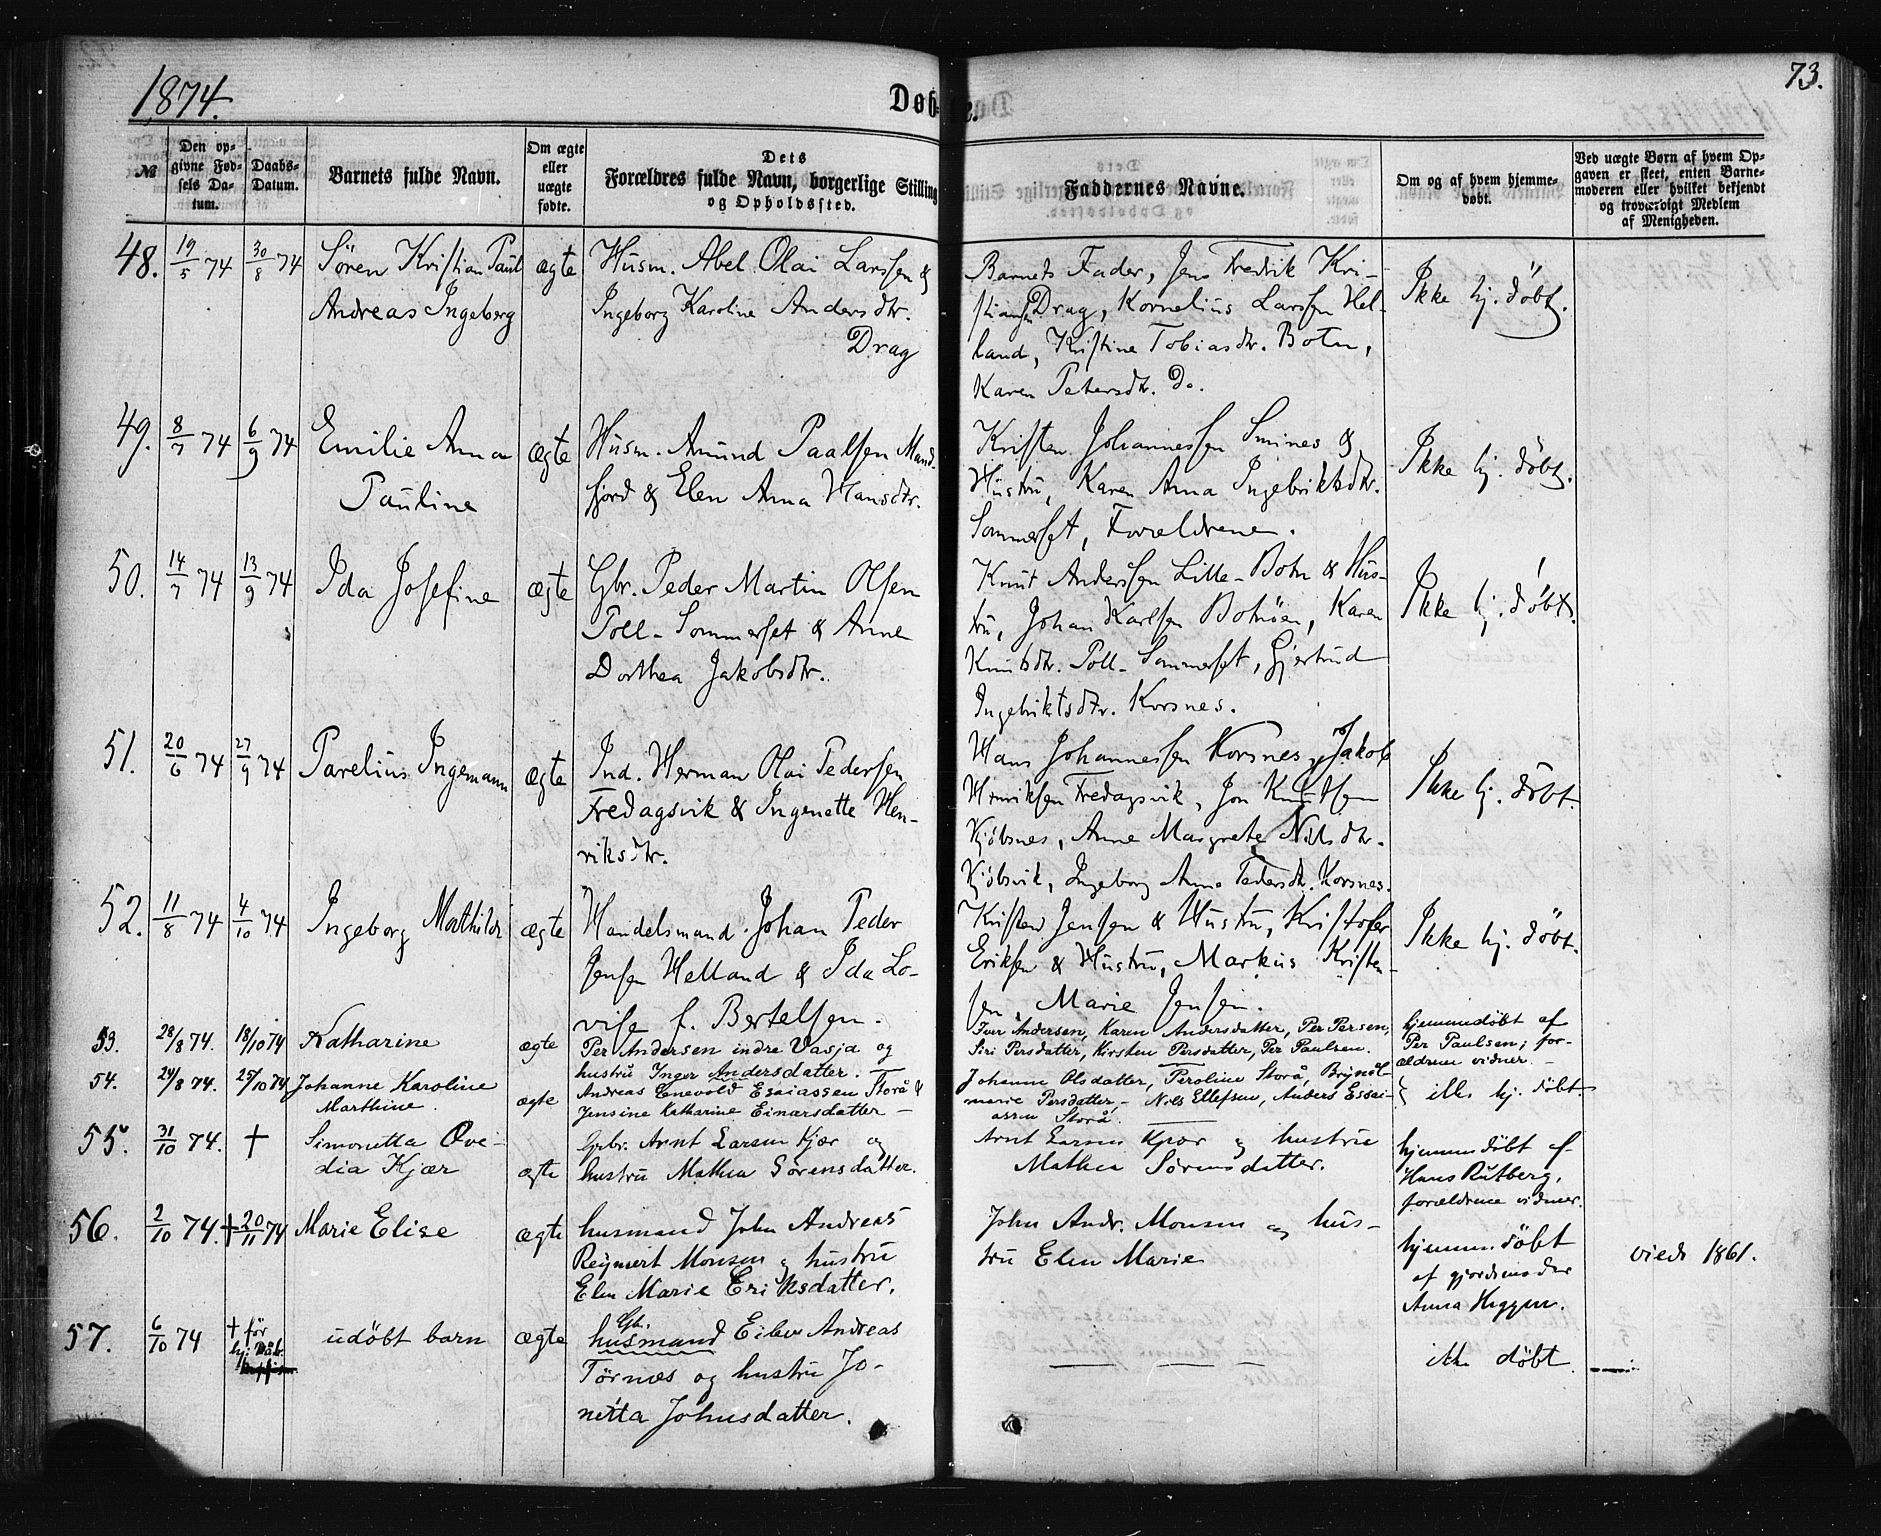 1874.
Døbte.
73.
№
Den opgivne Fødsels Datum.
Daabs-Datum.
Barnets fulde Navn.
Om ægte eller uægte fødte.
Dets Forældres fulde Navn, borgerlige Stilling og Opholdssted.
Faddernes Navne.
Om og af hvem hjemmedøbt.
Ved uægte Børn af hvem Opgaven er skeet, enten Barnemoderen eller hvilket bekjendt og troværdigt Medlem af Menigheden.
48. 19/5 74 30/8 74 Sören Kristian Paul ægte Husm. Abel Olai Larssen &
Andreas Ingeberg Ingeborg Karoline Andersdtr.
Drag
Barnets Fader, Jens Fredrik Kri-
stiansen Drag, Kornelius Larssen Hel-
land, Kristine Tobiasdtr. Botn,
Karen Petersdtr. Do.
Ikke hj. döbt.
49. 8/7 74 6/9 74 Emilie Anna ægte Husm. Amund Paalsen Mand-
Pauline fjord & Elen Anna Hansdtr.
Kristen Johannessen Smines &
Hustru, Karen Anna Ingebriktsdtr.
Sommerset, Forældrene.
Ikke hj. döbt.
50. 14/7 74 13/9 74 Ida Josefine ægte Gbr. Peder Martin Olsen
Poll-Sommerset & Anne
Dorthea Jakobsdtr.
Knut Anderssen Lille-Botn & Hus-
tru, Johan Karlsen Botnöen, Karen
Knutsdtr. Poll-Sommerset, Gjertrud
Ingebriktsdtr. Korsnes.
Ikke hj. döbt.
51. 20/6 74 27/9 74 Parelius Ingemann ægte Ind. Herman Olai Pedersen
Fredagsvik & Ingenette Hen-
riksdtr.
Hans Johannessen Korsnes, Jakob
Henriksen Fredagsvik, Jon Knutsen
Kjöbsnes, Anne Margrete Nilsdtr.
Kjöbsvik, Ingeborg Anna Pedersdtr. Korsnes.
Ikke hj. döbt.
52. 11/8 74 4/10 74 Ingeborg Mathilde ægte Handelsmand Johan Peder
Jensen Helland & Ida Lo-
vise f. Bertelsen.
Kristen Jensen & Hustru, Kristofer
Eriksen & Hustru, Markus Kristen-
sen, Marie Jensen.
Ikke hj. döbt.
53. 28/8 74. 18/10 74 Katharine ægte Per Andersen indre Vasja og
hustru Inger Andersdatter.
Iver Andersen, Karen Andersdatter, Per Persen,
Siri Persdatter, Kirsten Persdatter, Per Paulsen.
hjemmedøbt af
Per Paulsen; for-
ældrene vidner.
54. 24/8 74. 25/10 74 Johanne Karoline ægte Andreas Enevold Esaiassen Storå &
Marthine. Jensine Katharine Einarsdatter
Johanna Olsdatter, Peroline Storå, Brynil-
marie Persdatter, Nils Ellefsen, Anders Essai-
assen Storå.
ikke hj. döbt.
55. 31/10 74. † Simonetta Ove- ægte Gbr. Arnt Larsen Kjær og
dia Kjær hustru Mathea Sørensdatter.
Arnt Larsen Kjær og hustru
Mathea Sørensdatter.
hjemmedøbt af
Hans Rutberg,
forældrene vidner.
56. 2/10 74. † 20/11 74 Marie Elise ægte husmand John Andreas
Reignert Monsen og hustru
Elen Marie Eriksdatter.
John Andr. Monsen og hus-
tru Elen Marie
hjemmedöbt
af gjordemoder
Anna Heggen.
viede 1861.
57. 6/10 74 † før
hj. Dåb. udöbt barn ægte Gbr. husmand Eiler Andreas
Törnæs og hustru Jo-
netta Johnsdatter.
ikke döbt.